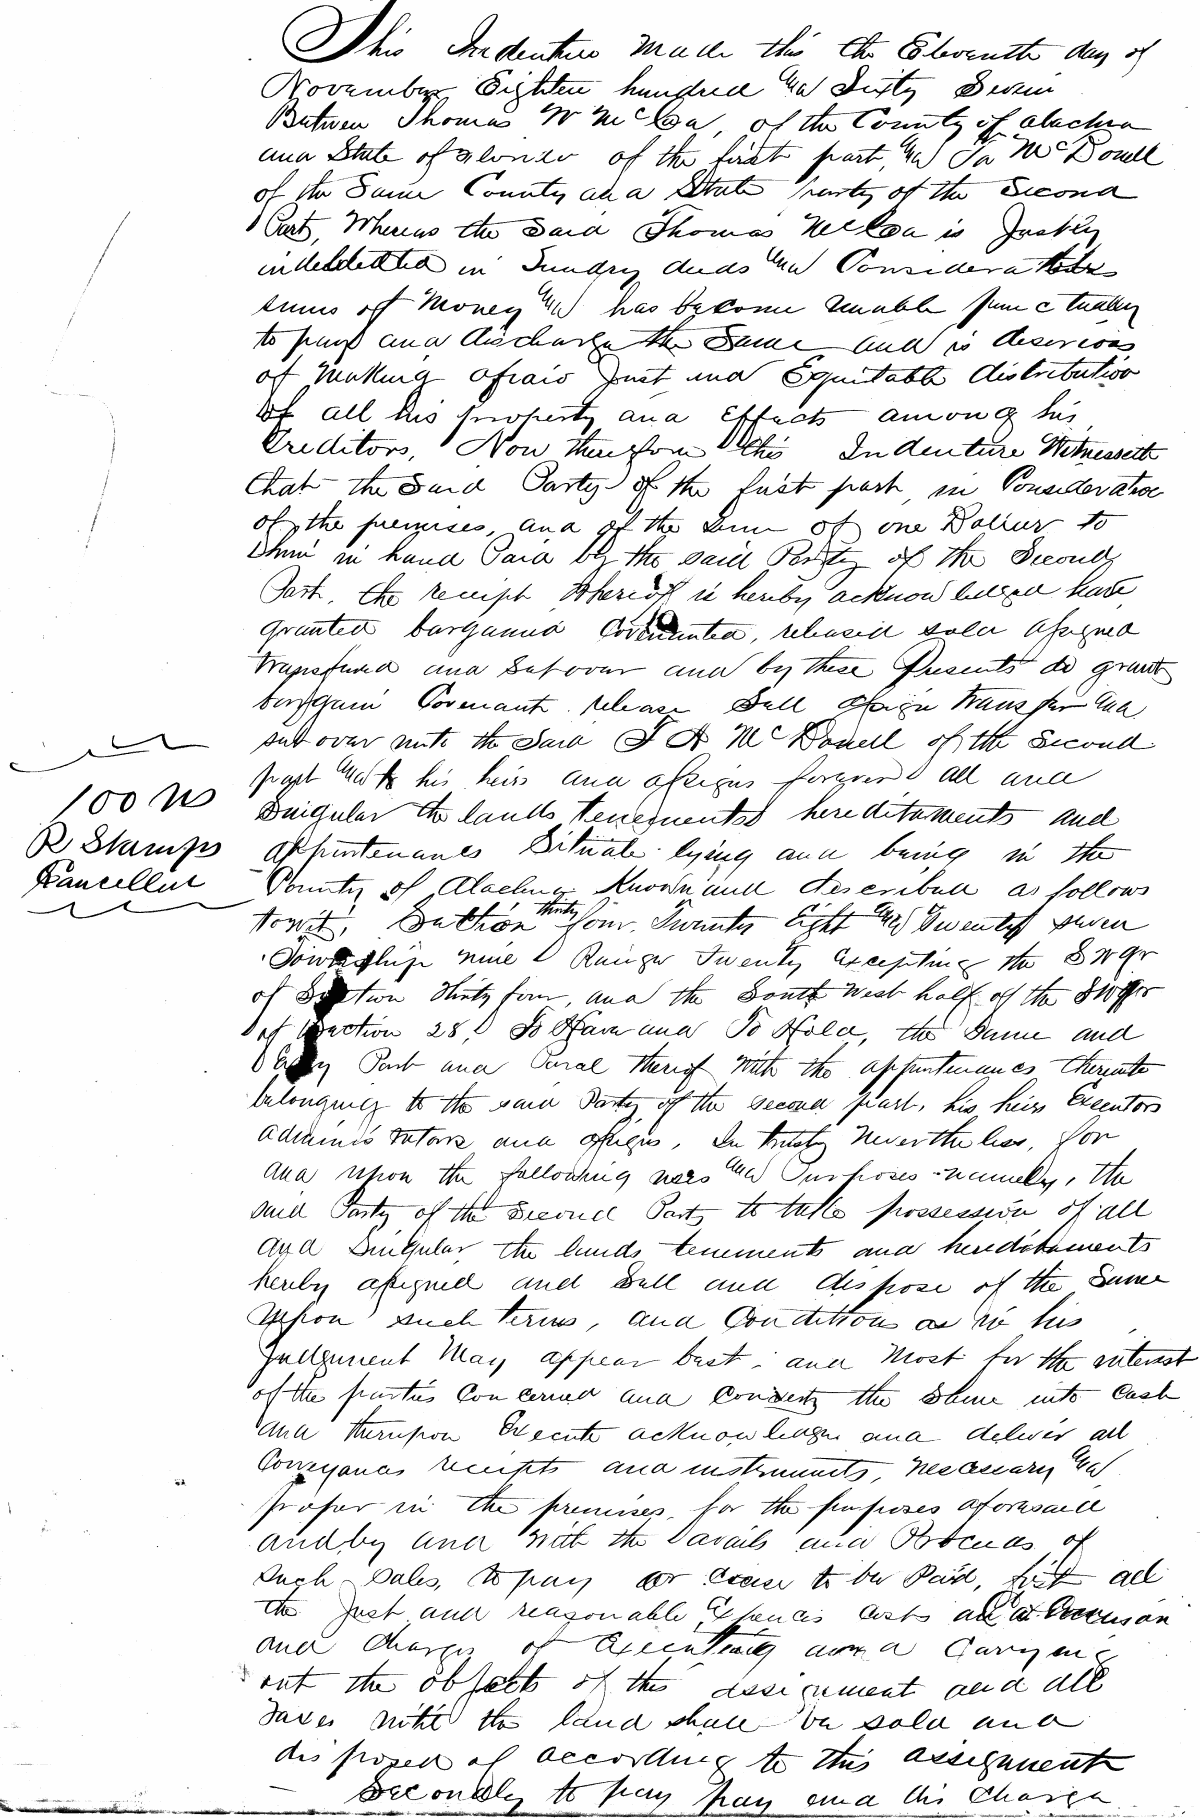 This Indenture Made this the Eleventh day of
November Eighteen hundred and Sixty Seven
Between Thomas W McCaa, of the County of alachua
and State of Florida of the first part, and McDonell
of the Same County and State party of the Second
Part, Whereas the Said Thomas McCaa is Justly
indebtedted in Sundry deeds and Considerable
sums of Money and has become unable punctually
to pay and discharge the Same and is desirious
of Making afair Just and Equitable distribution
of all his property and Effects among his
Creditors, Now therefore this Indenture Witnesseth
that the Said Party of the first part in Consideration
of the premises, and of the Sum of one Dollar to
him in hand Paid by the said Party of the Second
Part, the receipt whereof is hereby acknowledged have
granted bargained Covenanted, released sold assigned
transfered and Set over and by these Presents do grant
bargain Covenant release Sell assign transfer and
set over unto the Said T A McDonell of the Second
part and to his heirs and assigns forever all and
Singular the lands tenements hereditaments and
appurtenances Situate lying and being in the
County of Alachua Known and described as follows
towit; Section thirty four, Twenty Eight and Twenty seven
Township nine Range Twenty excepting the S W qr
of Section thirty four, and the South West half of the SW qr
of Section 28, To Have and To Hold, the Same and
Every Part and Parcel thereof With the appurtenances thereunto
belonging to the said Party of the second part, his heirs Executors
administrators and assigns, In trust Nevertheless, for
and upon the following uses and Purposes namely, the
said Party of the Second Part to take possession of all
and Singular the lands tenements and hereditaments
hereby assigned and Sell and dispose of the Same
upon such terms, and Conditions as in his
Judgement May appear best, and Most for the interest
of the parties Concerned and convert the Same into Cash
and thereupon Execute acknowledge and deliver all
Conveyances receipts and instruments, necessary and
proper in the premises, for the purposes aforesaid
and by and With the avails and Proceeds of
such sales, to pay or cause to be Paid, first all
the Just and reasonable Expences Costs
and Charges of Executing and Carrying
out the objects of this assignment and all
Taxes until the land shall be sold and
disposed of according to this assignment
Secondly to pay pay and discharge
100 
R Stamps
Cancelled